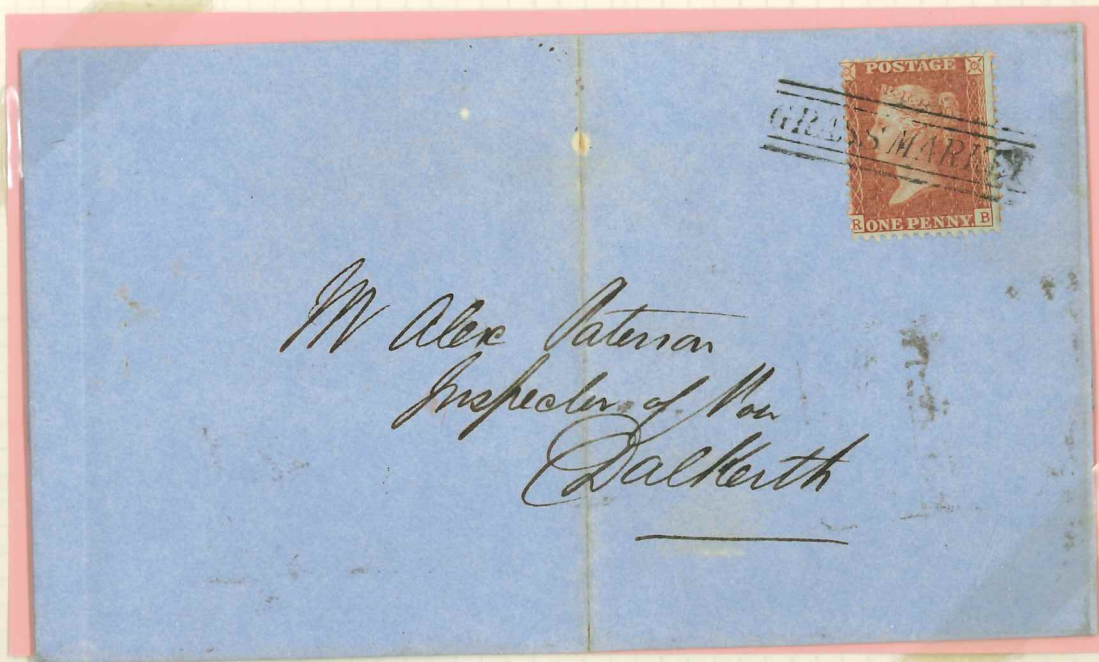 POSTAGE
GRASSMARKET
R ONE PENNY. B
Mr Alex Paterson
Inspector of Poor
Dalkeith